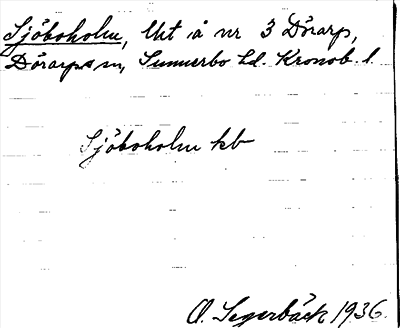 Sjöboholm, Utt å nr 3 Dörarp,
Dörarps sn, Sunnerbo hd. Kronob. l.
Sjöboholm kb
O. Segerbäck 1936.